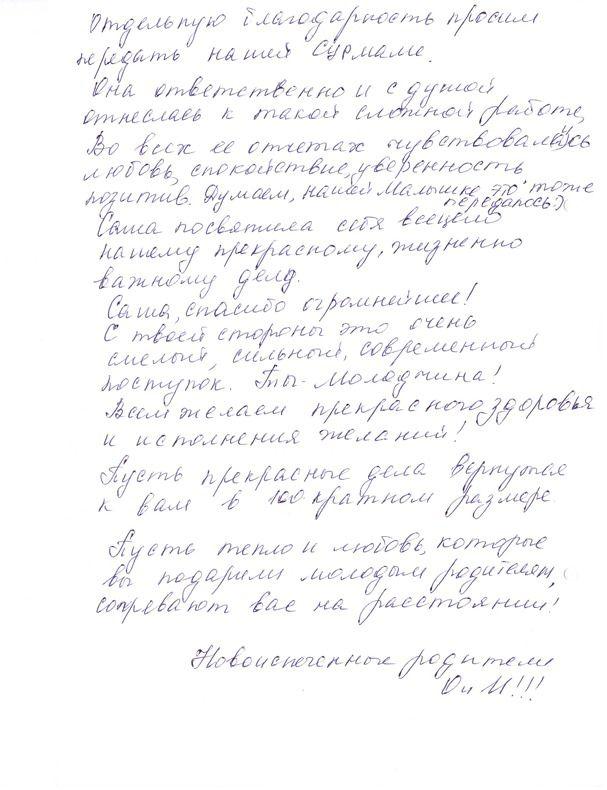 Отдельную благодарность просим
передать нашей Сурмаме.
Она ответственно и с душой
отнеслась к такой сложной работе,
Во всех ее отчетах чувствовались
любовь, спокойствие, уверенность
позитив. Думаем, нашей Малышке это тоже
передалось:)
Саша посвятила себя всецело
нашему прекрасному, жизненно
важному делу.
Саша, спасибо огромнейшее!
С твоей стороны это очень
смелый, сильный, современный
поступок. Ты - Молодчина!
Всем желаем прекрасного здоровья
и исполнения желаний!
Пусть прекрасные дела вернутся
к вам в 100 кратном размере.
Пусть тепло и любовь, которые
вы подарили молодым родителям,
согревают вас на расстоянии!
Новоиспеченные родители
О и И!!!